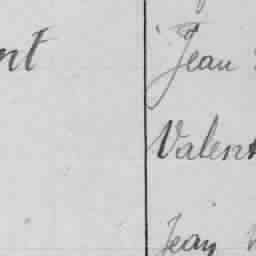 nt
Jean
Valent
Jean